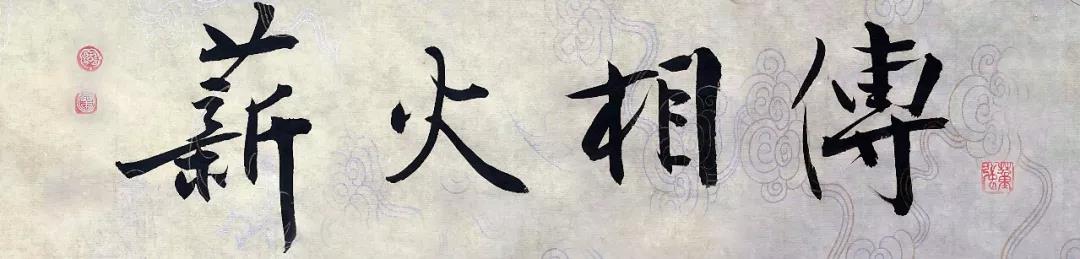 薪火相傳